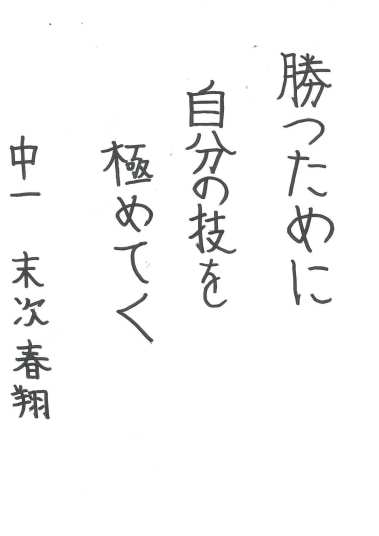 勝つために
自分の技を
極めてく
中一 末次春翔